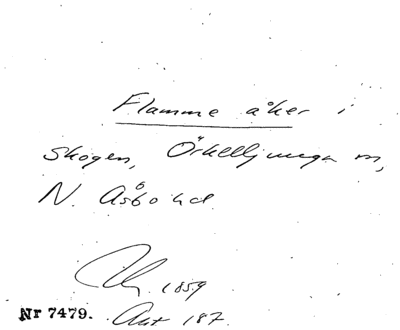 Flamme åker i
skogen, Örkelljunga sn,
N. Åsbo hd.
1859
Nr 7479. Ant. 187.